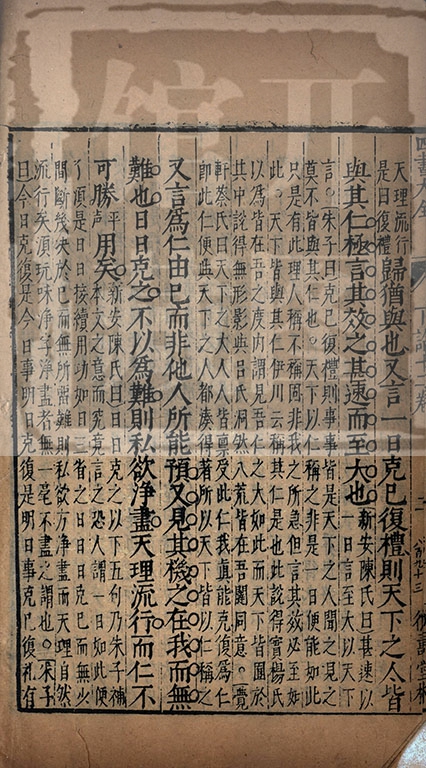 四書大全
天理流行
是日復禮
歸猶與也又言一日克己復禮則天下之人皆
與其仁極言其效之甚速而至大也
新安陳氏曰甚速以
一日言至大以天下
言。朱子曰克己復禮則事事皆是天下之人聞之見之
莫不皆與其仁也。天下以仁稱之非是一日便能如此
只是有此理人稱不稱固非我之所急但言其效必至如
此。天下皆與其仁伊川云稱其仁是也此說得實楊氏
以為皆在吾之度內謂見吾仁之大如此而天下皆囿於
其中說得無形影與呂氏洞然八荒皆在吾闥同意。覺
軒蔡氏曰天下之大人人皆稟受此仁我真能克復為仁
即此仁便與天下之人都湊得著所以天下皆以仁稱之
又言爲仁由己而非他人所能預又見其機之在我而無
難也日日克之不以爲難則私欲淨盡天理流行而仁不
可勝平聲用矣
新安陳氏曰日日克之以下五句乃朱子補
本文之意而究竟言之恐人謂一日如此便
了須是日日接續用功如曰三省之曰日日克己而無少
間斷幾決於己而無所留難則私欲方淨盡而天理自然
流行矣須玩味淨字淨盡者無一毫不盡之謂也。朱子
曰今日克復是今日事明日克復是明日事克己復禮有